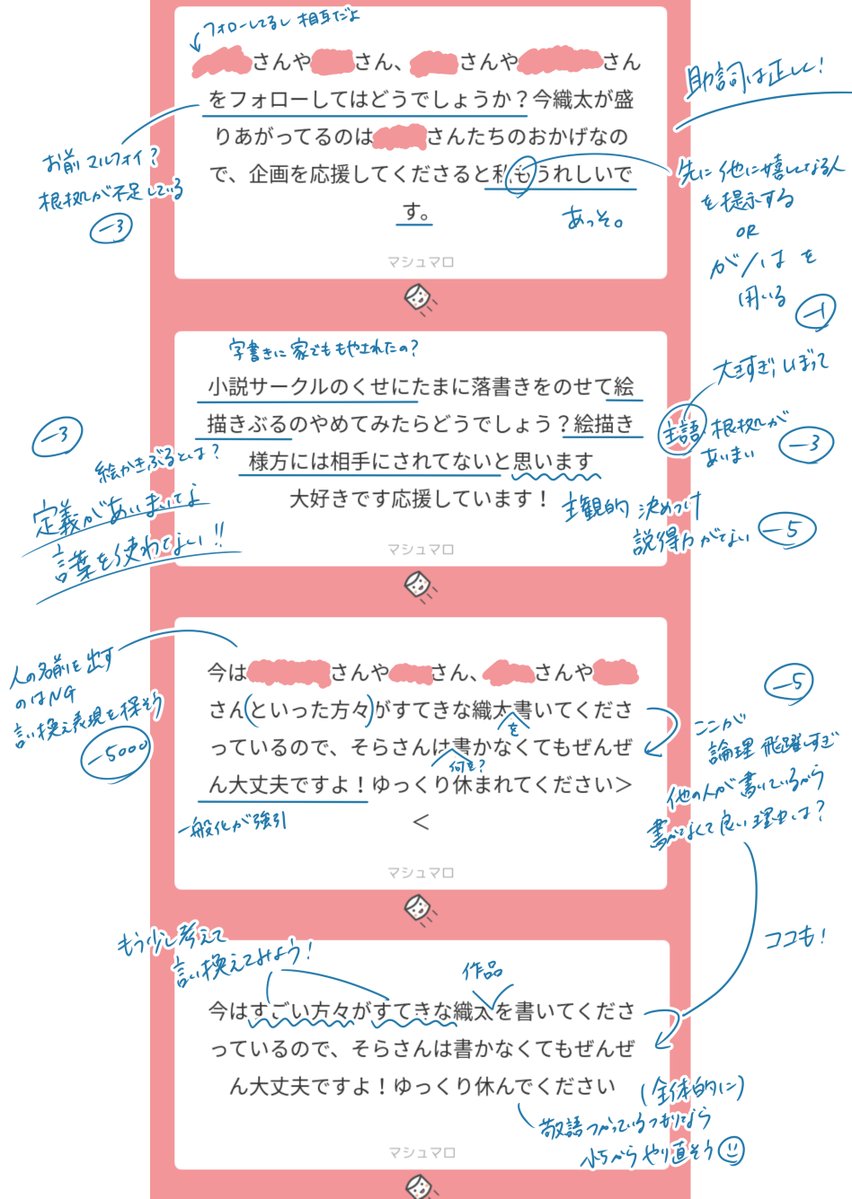 フォローしてるし 相互だよ
さんや さん、 さんや さん
をフォローしてはどうでしょうか？今織太が盛
りあがってるのは さんたちのおかげなの
で、企画を応援してくださると私もうれしいで
す。
マシュマロ
助詞は正しく!
お前マルフォイ?
根拠が不足している
-3
あっそ。
先に他に嬉しくなる人
を提示する
OR
が/は を
用いる
-1
字書きに家でももやされたの?
小説サークルのくせにたまに落書きをのせて絵
描きぶるのやめてみたらどうでしょう？絵描き
様方には相手にされてないと思います
大好きです応援しています！
マシュマロ
-3
絵かきぶるとは?
定義があいまいな
言葉を使わない!!
大きすぎ,しぼって
主語・根拠が
あいまい
-3
主観的 決めつけ
説得力がない
-5
今は さんや さん、 さんや
さんといった方々がすてきな織太書いてくださ
を
っているので、そらさんは書かなくてもぜんぜ
何を?
ん大丈夫ですよ！ゆっくり休まれてください＞
＜
マシュマロ
人の名前を出す
のはNG
言い換え表現を探そう
-5000
一般化が強引
-5
ここが
論理飛躍しすぎ
他の人が書いているから
書かなくて良い理由は?
ココも!
もう少し考えて
言い換えてみよう!
作品
今はすごい方々がすてきな織太を書いてくださ
っているので、そらさんは書かなくてもぜんぜ
ん大丈夫ですよ！ゆっくり休んでください
マシュマロ
(全体的に)
敬語つかっているつもりなら
小5からやり直そう